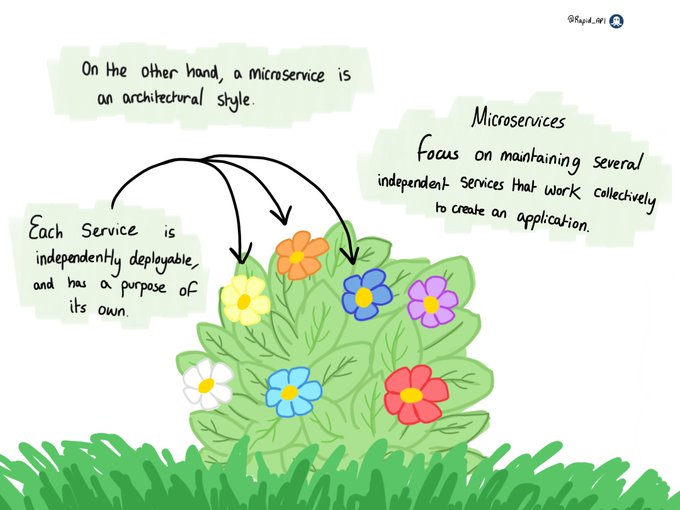 @Rapid_API
On the other hand, a microservice is
an architectural style.
Microservices
Focus on maintaining several
independent services that work collectively
to create an application.
Each Service is
independently deployable,
and has a purpose of
its own.